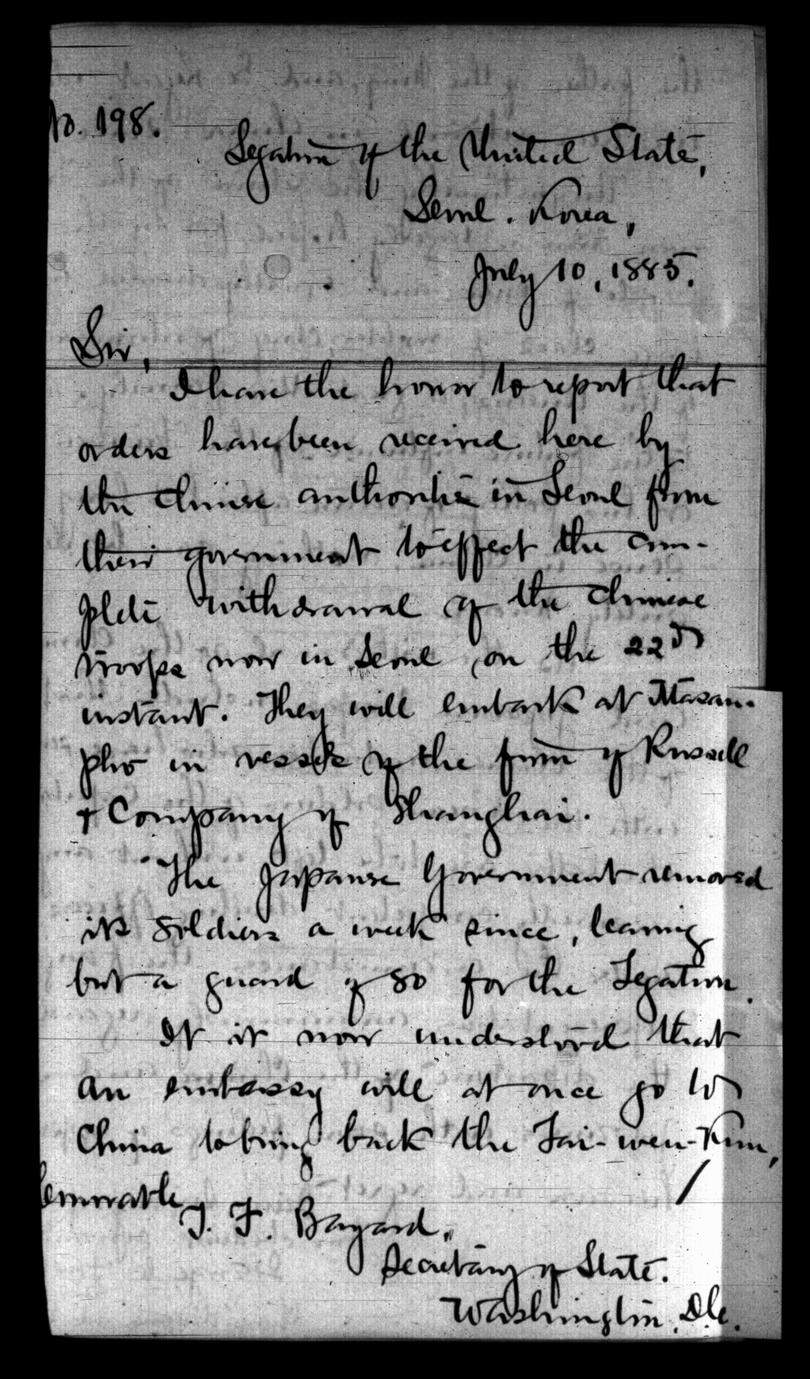 No. 198.
Legation of the United States,
Seoul. Korea,
July 10, 1885.
Sir,
I have the honor to report that
orders have been received here by
the Chinese authorities in Seoul from
their government to effect the com-
plete withdrawal of the Chinese
troops now in Seoul, on the 22d
instant. They will embark at Masan-
pho in vessels of the firm of Russell
& Company of Shanghai.
The Japanese Government removed
its soldiers a week since, leaving
but a guard of 80 for the Legation.
It is now understood that
an embassy will at once go to
China to bring back the Tai-wen-Kun,
/
Honorable
T. F. Bayard,
Secretary of State.
Washington, D.C.